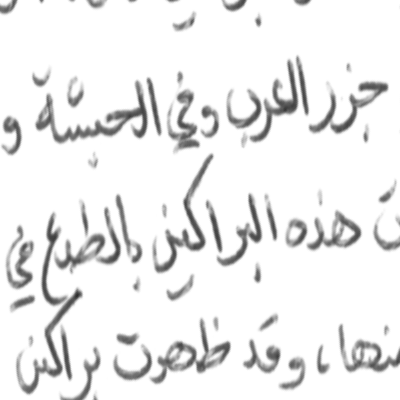 جزر الغرب وفي الحبشة و
هذه البراكين بالطدع في
منها، وقد ظهرت براكين